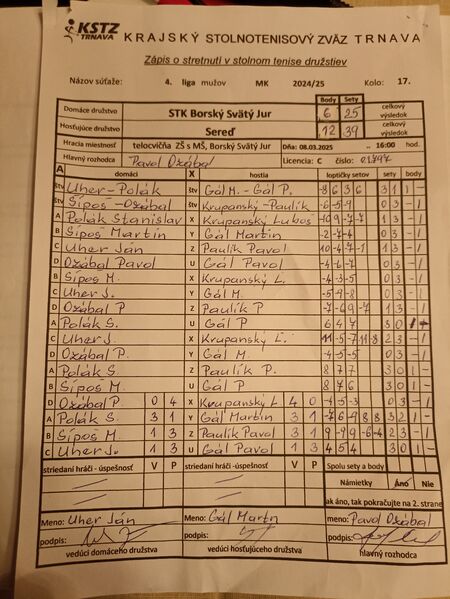 KSTZ
TRNAVA
KRAJSKÝ STOLNOTENISOVÝ ZVÄZ TRNAVA
Zápis o stretnutí v stolnom tenise družstiev
Názov súťaže: 4. liga mužov MK 2024/25 Kolo: 17.
Body Sety
Domáce družstvo STK Borský Svätý Jur 6 25 celkový výsledok
Hosťujúce družstvo Sereď 12 39 celkový výsledok
Hracia miestnosť telocvičňa ZŠ s MŠ, Borský Svätý Jur Dňa: 08.03.2025 16:00 hod.
Hlavný rozhodca Pavol Džábal Licencia: C číslo:
A domáci X hostia loptičky setov sety body
štv Uher-Polák štv Gál M. - Gál P. -8 6 3 6 3 1 1 -
štv Sípos-Džábal štv Krupanský-Paulík -6 -5 -9 0 3 - 1
A Polák Stanislav X Krupanský Luboš -10 9 -7 -7 1 3 - 1
B Sípos Martin Y Gál Martin -2 -7 -4 0 3 - 1
C Uher Ján Z Paulík Pavol 1 3 - 1
D Džábal Pavol U Gál Pavol -4 -6 -7 0 3 - 1
B Sípos M. X Krupanský L. -4 -3 -5 0 3 - 1
C Uher J. Y Gál M. -5 -9 -8 0 3 - 1
D Džábal P Z Paulík P 1 3 - 1
A Polák S. U Gál P 6 4 7 3 0 1 -
C Uher J. X Krupanský L. 2 3 - 1
D Džábal P. Y Gál M. -4 -5 -5 0 3 - 1
A Polák S Z Paulík P. 8 7 7 3 0 1 -
B Sípos M. U Gál P 8 7 6 3 0 1 -
D Džábal P. 0 4 X Krupanský L 4 0 -4 -5 -3 0 3 - 1
A Polák S. 3 1 Y Gál Martin 3 1 -7 6 -9 8 8 3 2 1 -
B Sípos M. 1 3 Z Paulík Pavol 3 1 9 -9 9 -6 -4 2 3 - 1
C Uher J. 1 3 U Gál Pavol 1 3 4 5 4 3 0 1 -
striedaní hráči - úspešnosť V P striedaní hráči - úspešnosť V P Spolu sety a body
Námietky Áno Nie
ak áno, tak pokračujte na 2. strane
Meno: Uher Ján Meno: Gál Martin meno: Pavol Džábal
podpis: podpis: podpis:
vedúci domáceho družstva vedúci hosťujúceho družstva hlavný rozhodca